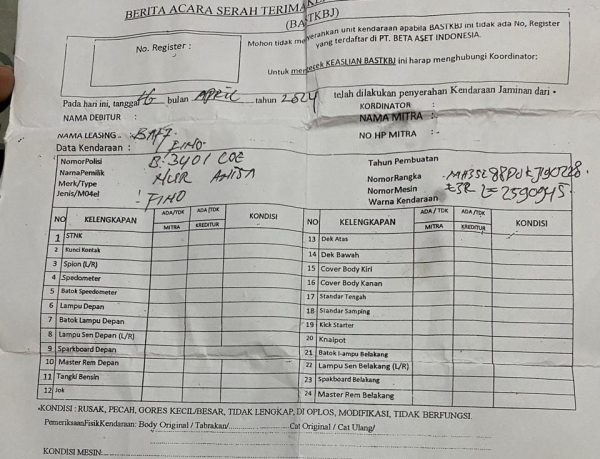 BERITA ACARA SERAH TERIMA
(BASTKBJ)
No. Register :
Mohon tidak menyerahkan unit kendaraan apabila BASTKBJ ini tidak ada No, Register
yang terdaftar di PT. BETA ASET INDONESIA.
Untuk mengecek KEASLIAN BASTKBJ ini harap menghubungi Koordinator:
Pada hari ini, tanggal 16 bulan APRIL tahun 2024 telah dilakukan penyerahan Kendaraan Jaminan dari •
NAMA DEBITUR :
KORDINATOR :
NAMA MITRA :-
NAMA LEASING . : BAF7
NO HP MITRA : -
Data Kendaraan : FINO
NomorPolisi B. 3401 COE
NamaPemilik NUR ANISA
Merk/Type
Jenis/M04el : FINO
Tahun Pembuatan
NomorRangka
NomorMesin
Warna Kendaraan
NO KELENGKAPAN ADA/TDK MITRA ADA/TDK KREDITUR KONDISI
1 STNK
2 Kunci Kontak
3 Spion (L/R)
4 Spedometer
5 Batok Speedometer
6 Lampu Depan
7 Batok Lampu Depan
8 Lampu Sen Depan (L/R)
9 Sparkboard Depan
10 Master Rem Depan
11 Tangki Bensin
12 Jok
NO KELENGKAPAN ADA/TDK MITRA ADA/TDK KREDITUR KONDISI
13 Dek Atas
14 Dek Bawah
15 Cover Body Kiri
16 Cover Body Kanan
17 Standar Tengah
18 Standar Samping
19 Kick Starter
20 Knalpot
21 Batok Lampu Belakang
22 Lampu Sen Belakang (L/R)
23 Spakboard Belakang
24 Master Rem Belakang
•KONDISI : RUSAK, PECAH, GORES KECIL/BESAR, TIDAK LENGKAP, DI OPLOS, MODIFIKASI, TIDAK BERFUNGSI.
PemeriksaanFisikKendaraan: Body Original / Tabrakan/ Cat Original / Cat Ulang/
KONDISI MESIN: